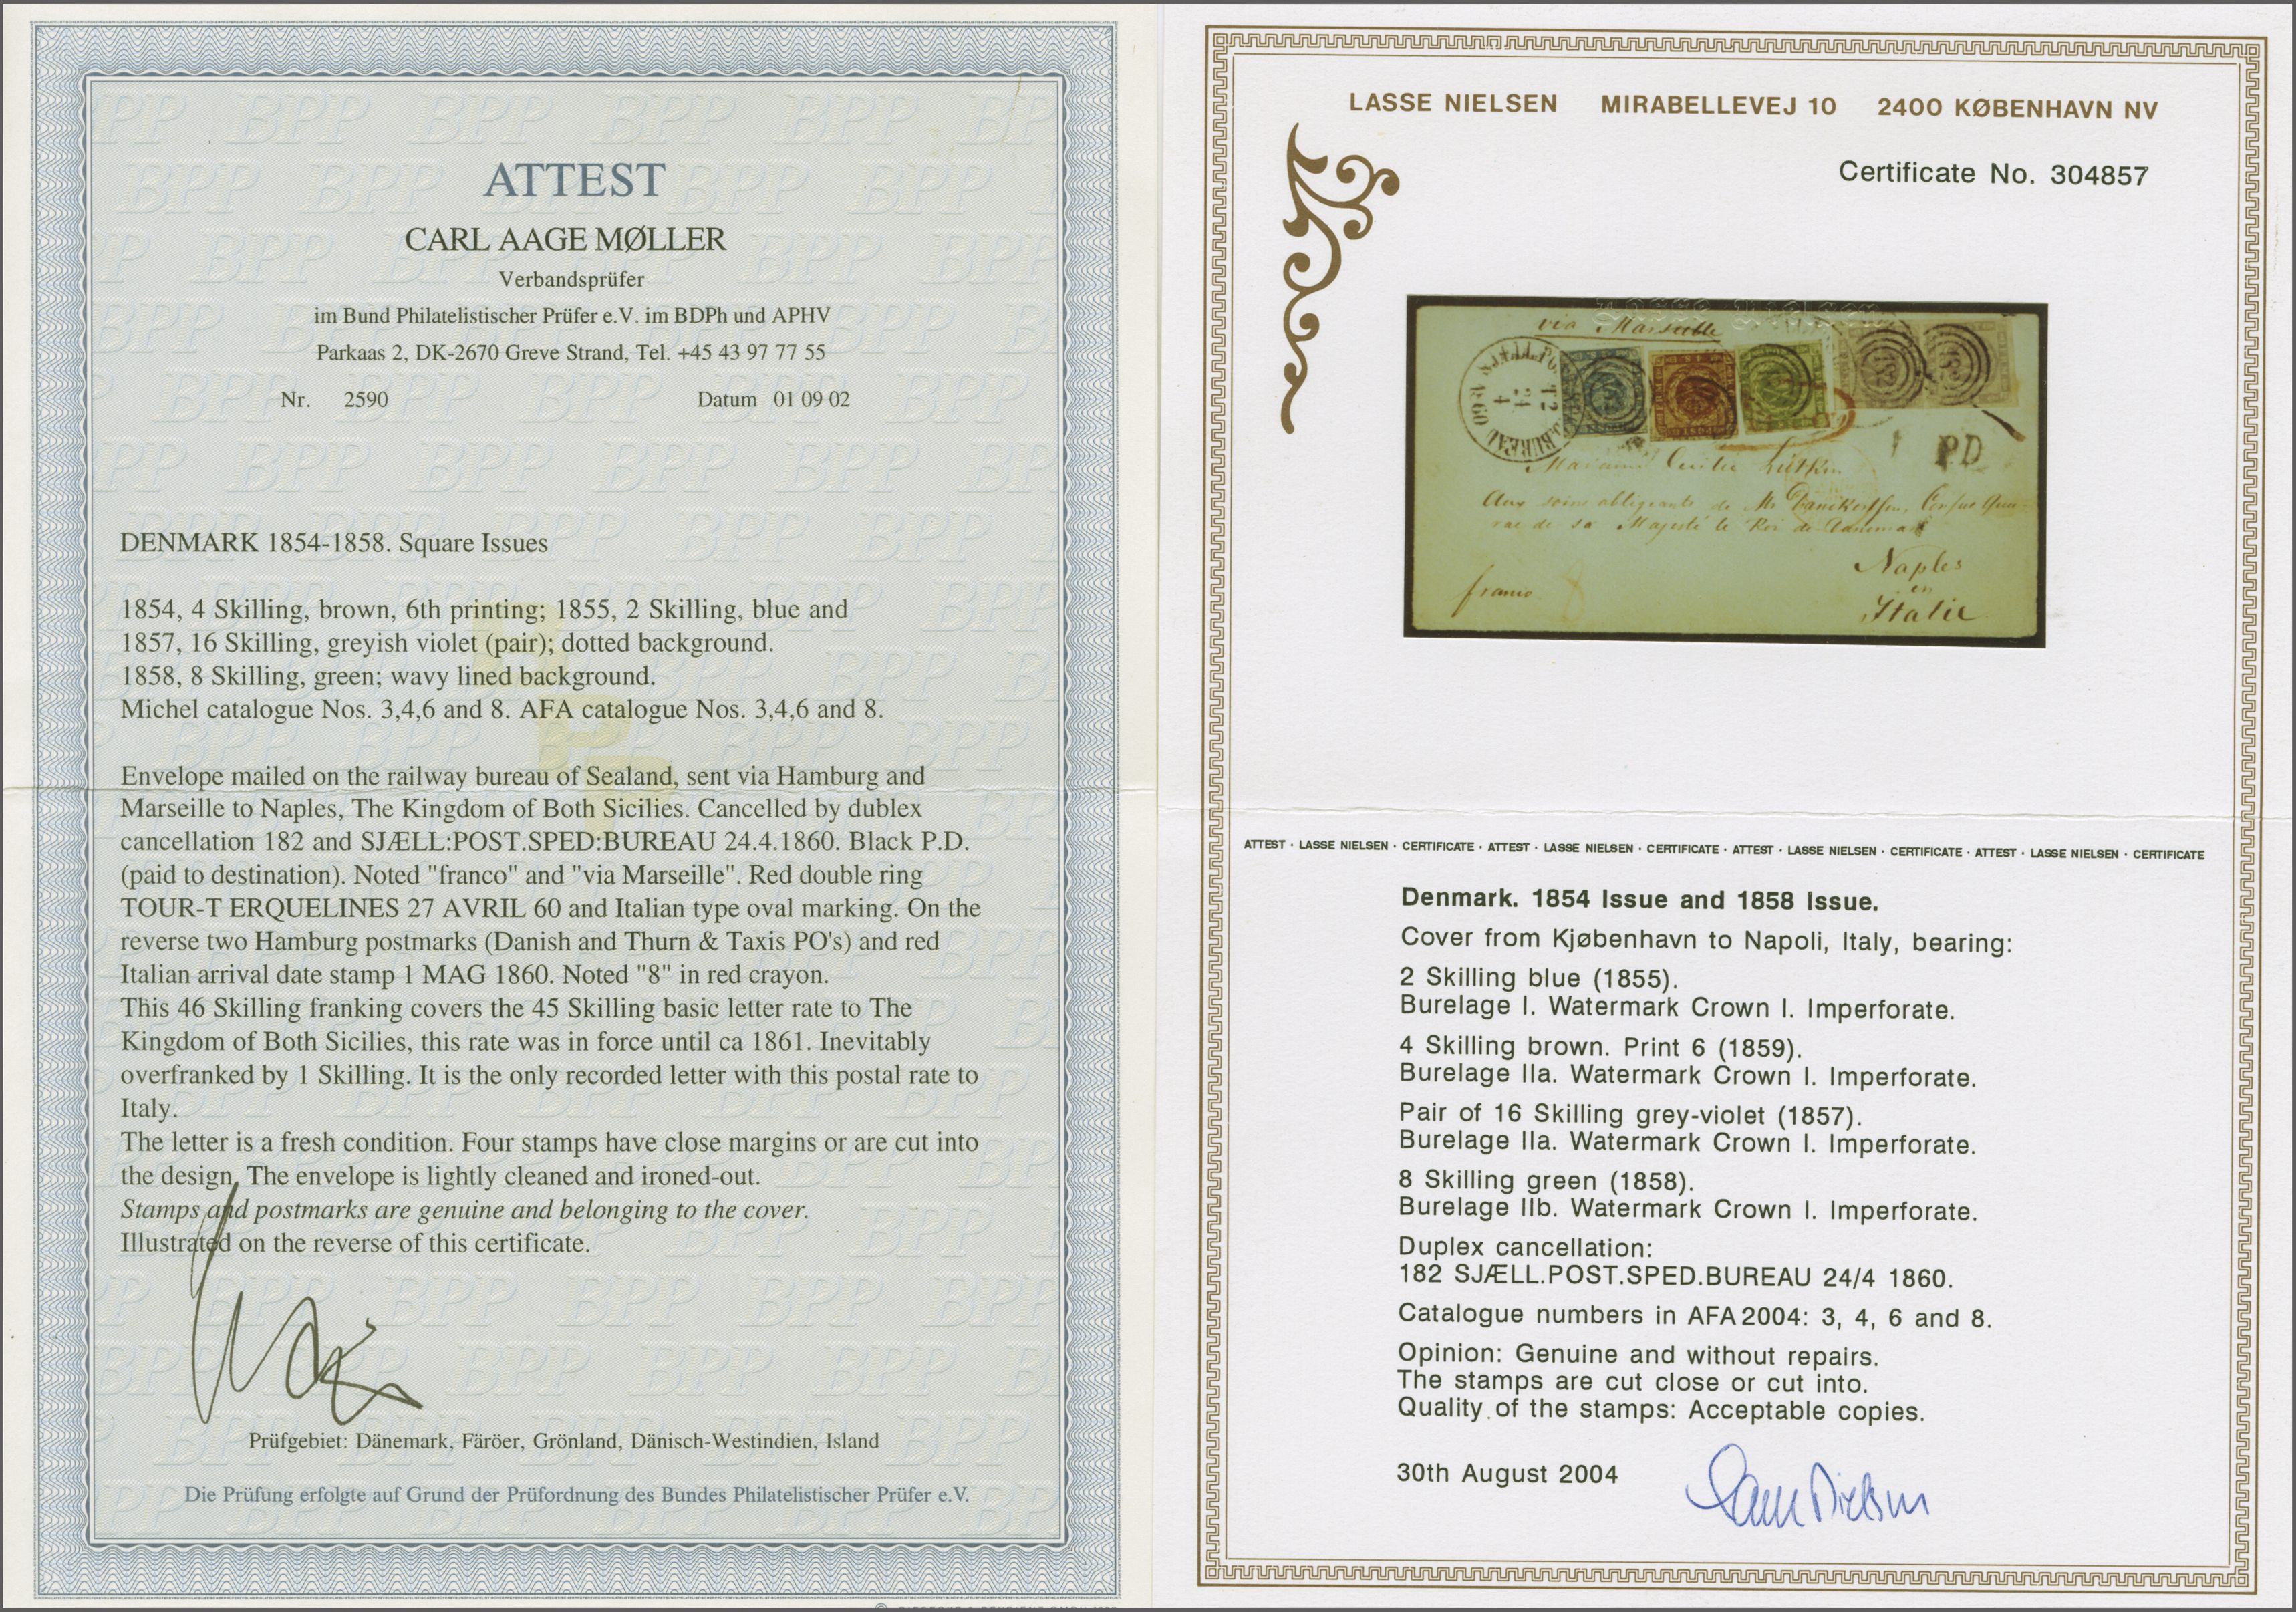 ATTEST
CARL AAGE MØLLER
Verbandsprüfer
im Bund Philatelistischer Prüfer e.V. im BDPh und APHV
Parkaas 2, DK-2670 Greve Strand, Tel. +45 43 97 77 55
Nr. 2590 Datum 01 09 02
DENMARK 1854-1858. Square Issues
1854, 4 Skilling, brown, 6th printing; 1855, 2 Skilling, blue and
1857, 16 Skilling, greyish violet (pair); dotted background.
1858, 8 Skilling, green; wavy lined background.
Michel catalogue Nos. 3,4,6 and 8. AFA catalogue Nos. 3,4,6 and 8.
Envelope mailed on the railway bureau of Sealand, sent via Hamburg and
Marseille to Naples, The Kingdom of Both Sicilies. Cancelled by dublex
cancellation 182 and SJÆLL:POST.SPED:BUREAU 24.4.1860. Black P.D.
(paid to destination). Noted "franco" and "via Marseille". Red double ring
TOUR-T ERQUELINES 27 AVRIL 60 and Italian type oval marking. On the
reverse two Hamburg postmarks (Danish and Thurn & Taxis PO's) and red
Italian arrival date stamp 1 MAG 1860. Noted "8" in red crayon.
This 46 Skilling franking covers the 45 Skilling basic letter rate to The
Kingdom of Both Sicilies, this rate was in force until ca 1861. Inevitably
overfranked by 1 Skilling. It is the only recorded letter with this postal rate to
Italy.
The letter is a fresh condition. Four stamps have close margins or are cut into
the design. The envelope is lightly cleaned and ironed-out.
Stamps and postmarks are genuine and belonging to the cover.
Illustrated on the reverse of this certificate.
Prüfgebiet: Dänemark, Färöer, Grönland, Dänisch-Westindien, Island
Die Prüfung erfolgte auf Grund der Prüfordnung des Bundes Philatelistischer Prüfer e.V.
LASSE NIELSEN MIRABELLEVEJ 10 2400 KØBENHAVN NV
Certificate No. 304857
via Marseille
PD
aux soins obligeants de Mr
de sa Majesté le Roi de
Naples
en
Italie
franco
ATTEST · LASSE NIELSEN · CERTIFICATE · ATTEST · LASSE NIELSEN · CERTIFICATE · ATTEST · LASSE NIELSEN · CERTIFICATE · ATTEST · LASSE NIELSEN · CERTIFICATE
Denmark. 1854 Issue and 1858 Issue.
Cover from Kjøbenhavn to Napoli, Italy, bearing:
2 Skilling blue (1855).
Burelage I. Watermark Crown I. Imperforate.
4 Skilling brown. Print 6 (1859).
Burelage IIa. Watermark Crown I. Imperforate.
Pair of 16 Skilling grey-violet (1857).
Burelage IIa. Watermark Crown I. Imperforate.
8 Skilling green (1858).
Burelage IIb. Watermark Crown I. Imperforate.
Duplex cancellation:
182 SJÆLL.POST.SPED.BUREAU 24/4 1860.
Catalogue numbers in AFA 2004: 3, 4, 6 and 8.
Opinion: Genuine and without repairs.
The stamps are cut close or cut into.
Quality of the stamps: Acceptable copies.
30th August 2004